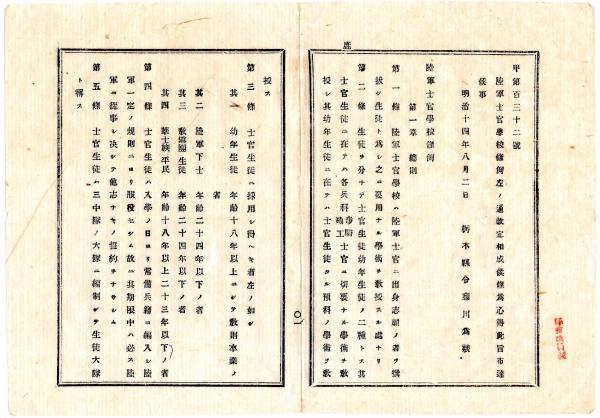 甲第百三十二號
陸軍士官學校條例左ノ通改定相成候條為心得此旨布達
候事
明治十四年八月二日 栃木縣令藤川為親
陸軍士官學校條例
第一章 總則
第一條 陸軍士官學校ハ陸軍士官ニ出身志願ノ者ヲ撰
拔シ生徒ト為シ之ニ要用ナル學術ヲ教授スル處ナリ
第二條 生徒ヲ分テ士官生徒幼年生徒ノ二種トス其
士官生徒ニ在テハ各兵科 歩騎砲工 士官ニ切要ナル學術ヲ教
授シ其幼年生徒ニ在テハ士官生徒タル預科ノ學術ヲ教
授ス
第三條 士官生徒ニ採用シ得ヘキ者左ノ如シ
其一 幼年生徒 年齡十八年以上ニシテ教則卒業ノ
者
其二 陸軍下士 年齡二十四年以下ノ者
其三 教導團生徒 年齡二十四年以下ノ者
其四 華士族平民 年齡十八年以上二十三年以下ノ者
第四條 士官生徒ハ入學ノ日ヨリ常備兵籍ニ編入シ陸
軍一定ノ規則ニヨリ服役セシム故ニ其期限中ハ必ス陸
軍ニ從事シ決シテ他志ナキノ誓約ヲナサシム
第五條 士官生徒ハ三中隊ノ大隊ニ編制シテ生徒大隊
ト稱ス